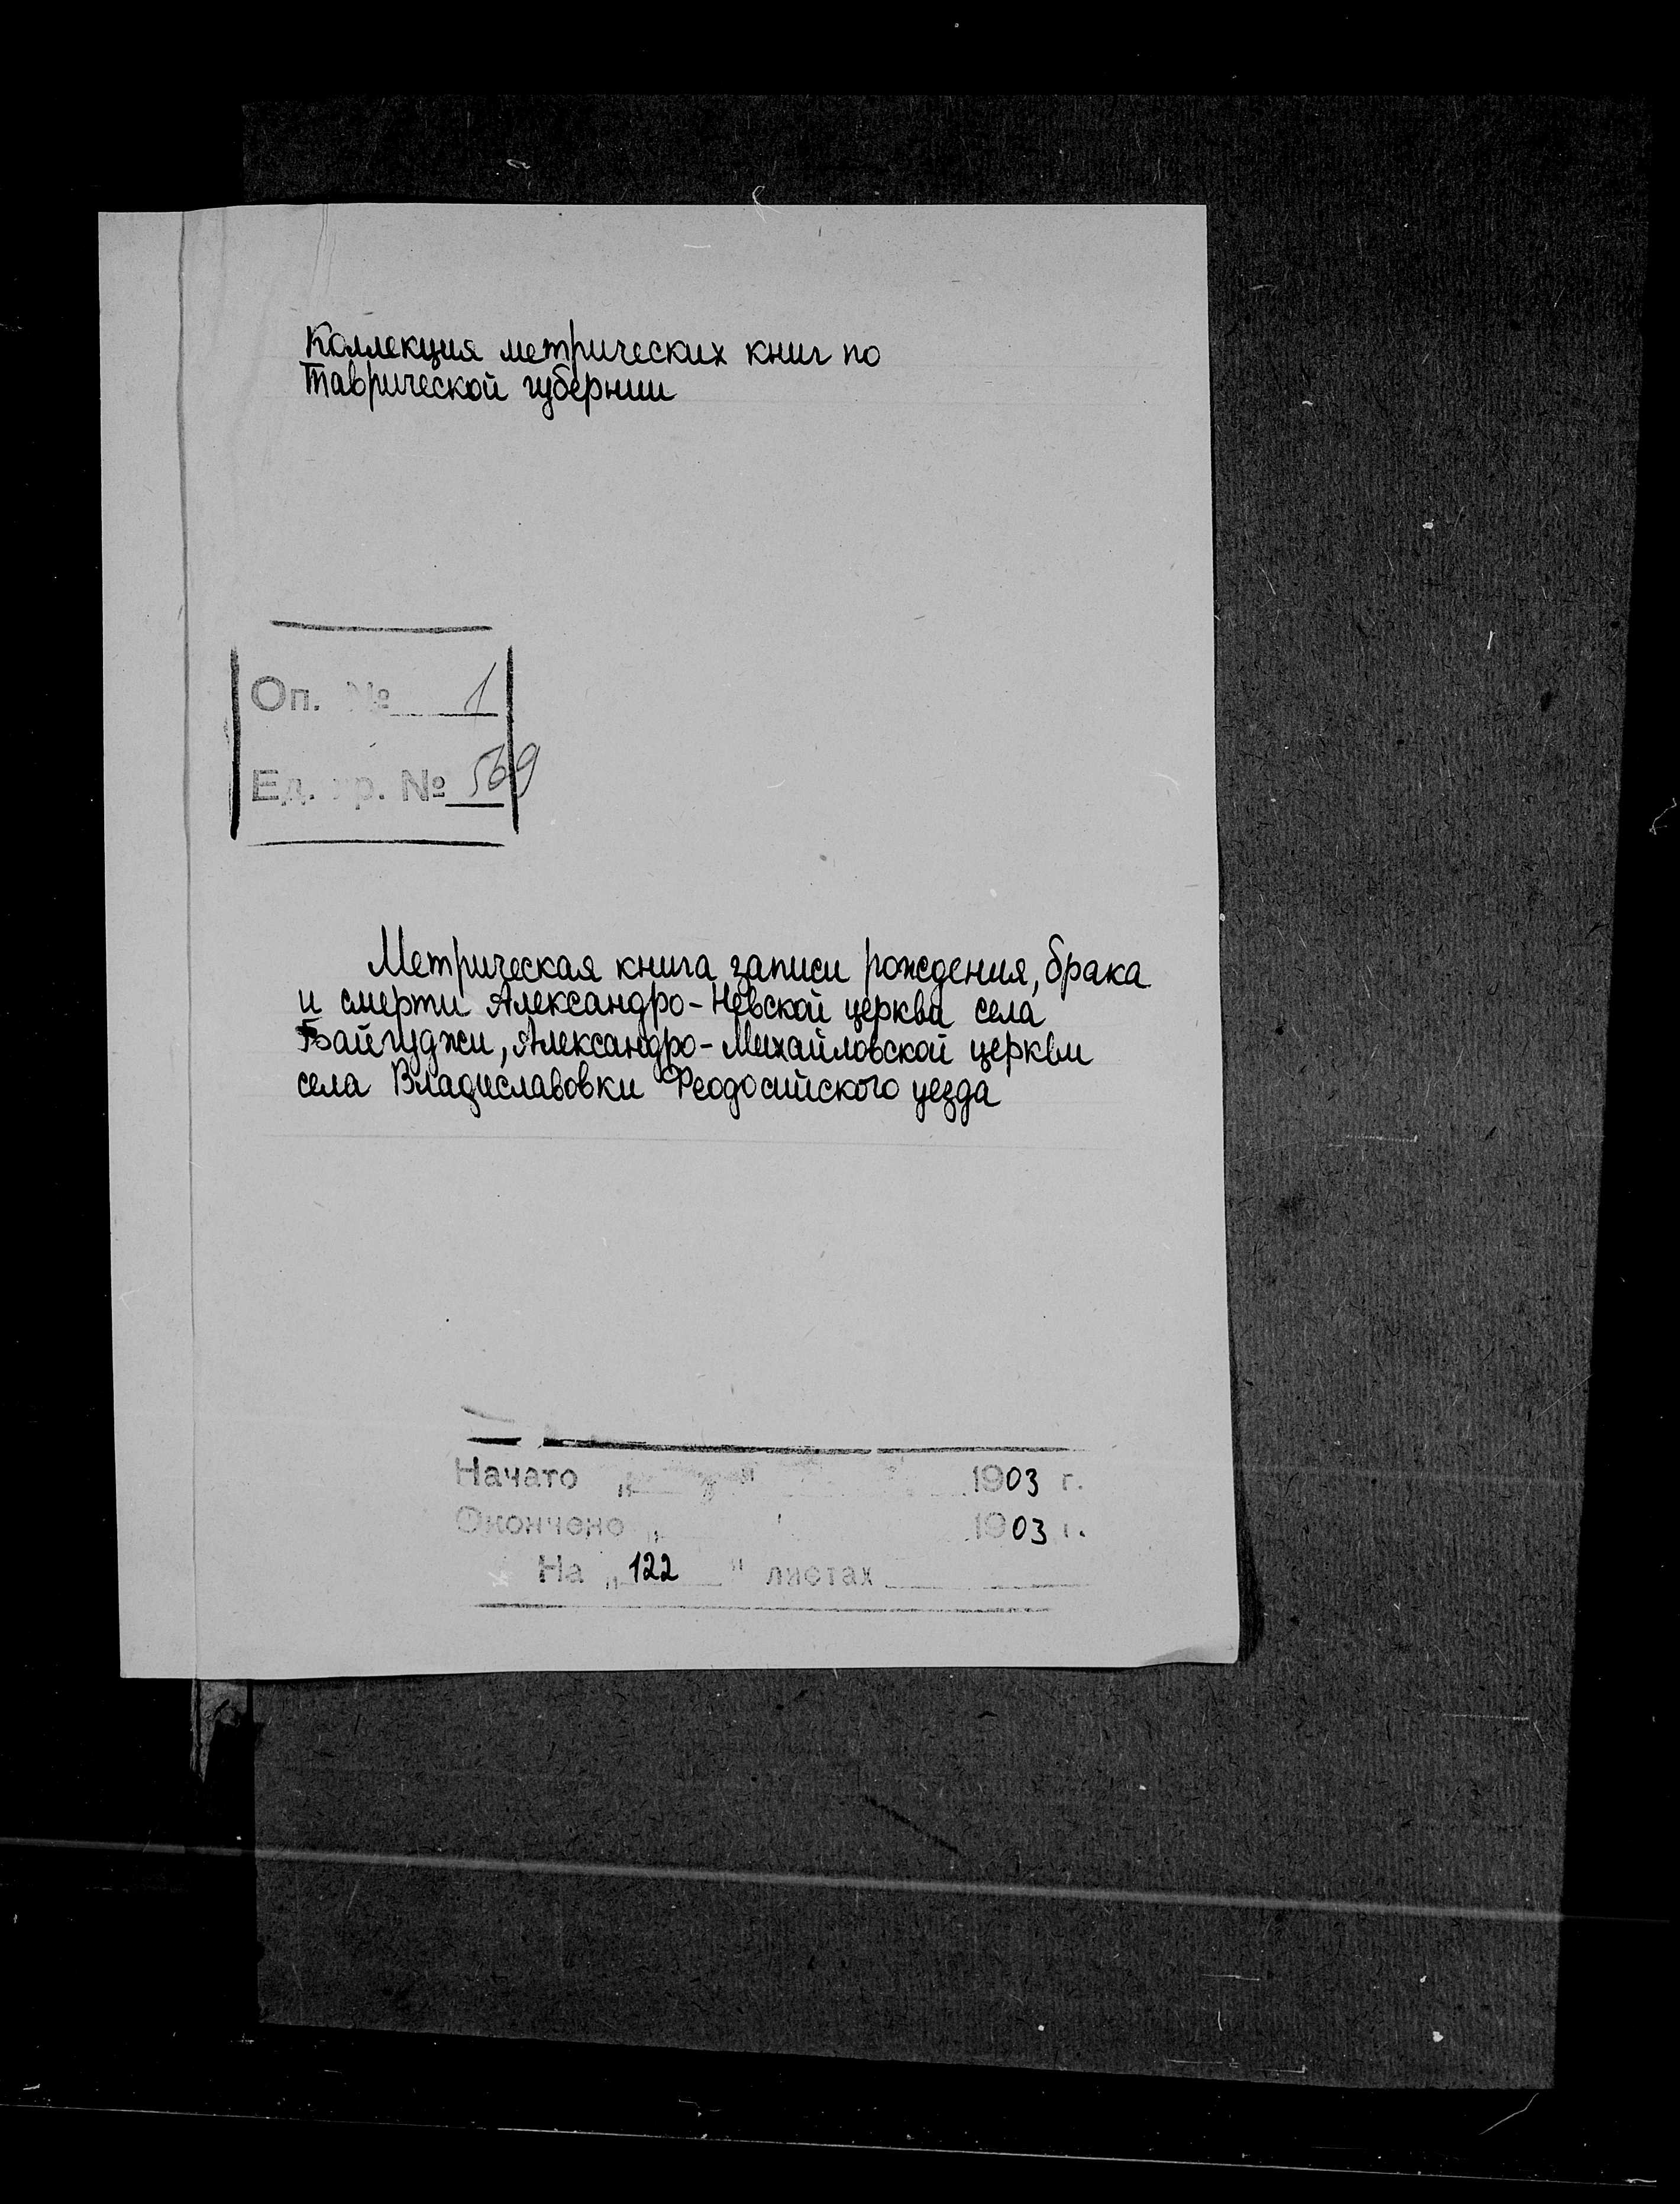 Коллекция метрических книг по
Таврической губернии
Оп. № 1
Ед. хр. № 569
Метрическая книга записи рождения, брака
и смерти Александро-Невской церкви села
Байгуджи, Александро-Михайловской церкви
села Владиславовки Феодосийского уезда
Начато „ " 1903 г.
Окончено „ " 1903 г.
На „122" листах